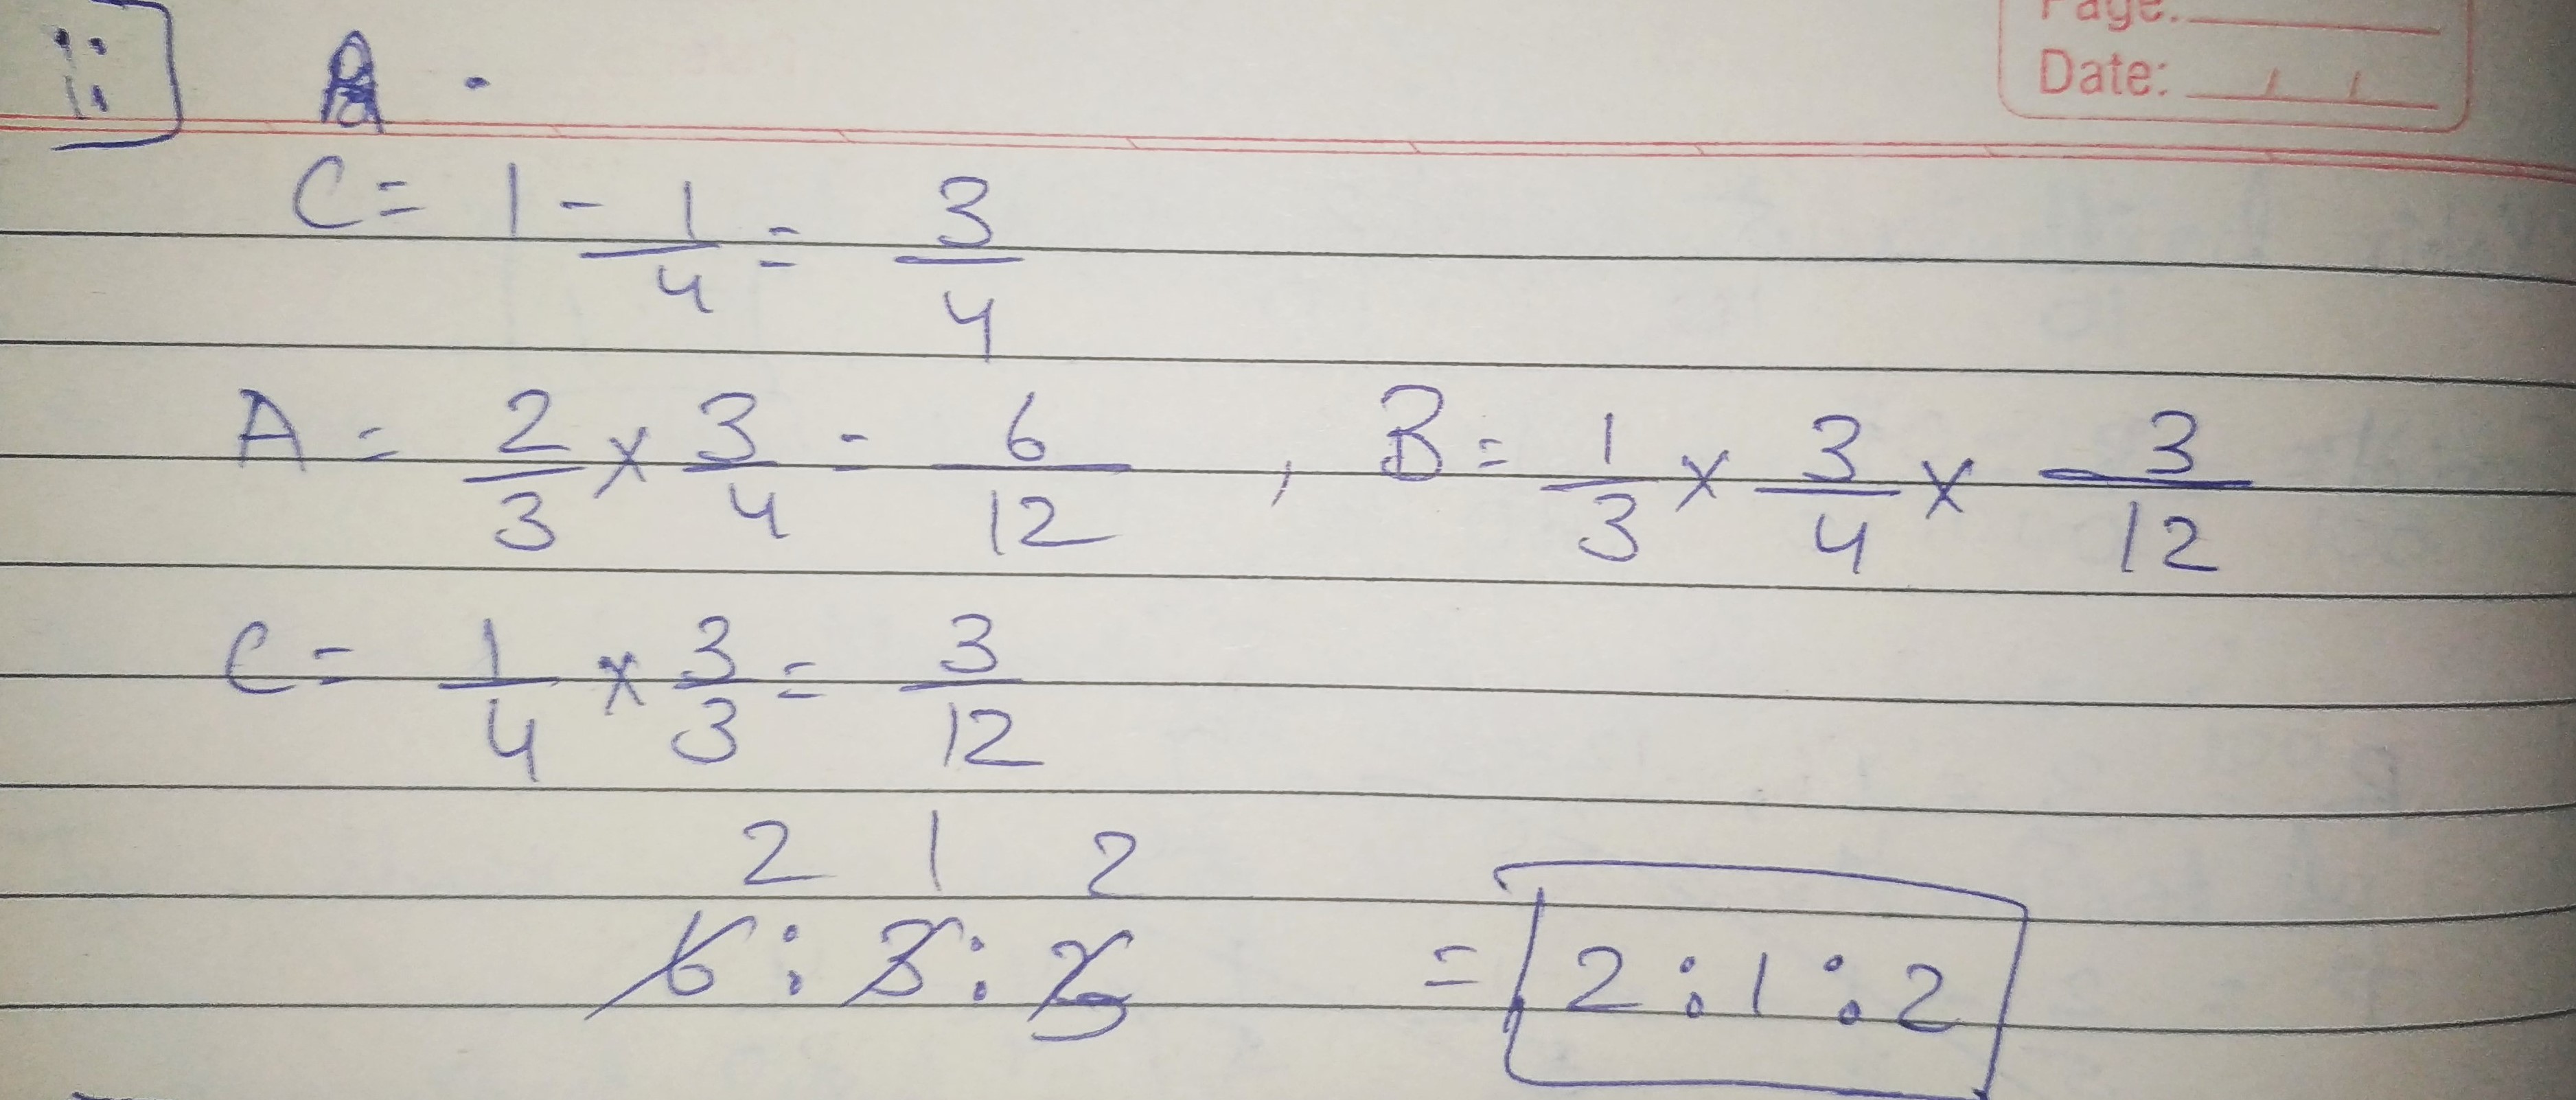 Page:
Date: / /
ii]
A .
C = 1 - 1/4 = 3/4
A = 2/3 × 3/4 - 6/12 , B = 1/3 × 3/4 × 3/12
C = 1/4 × 3/3 = 3/12
2 1 2
6 : 3 : 3 = 2 : 1 : 2